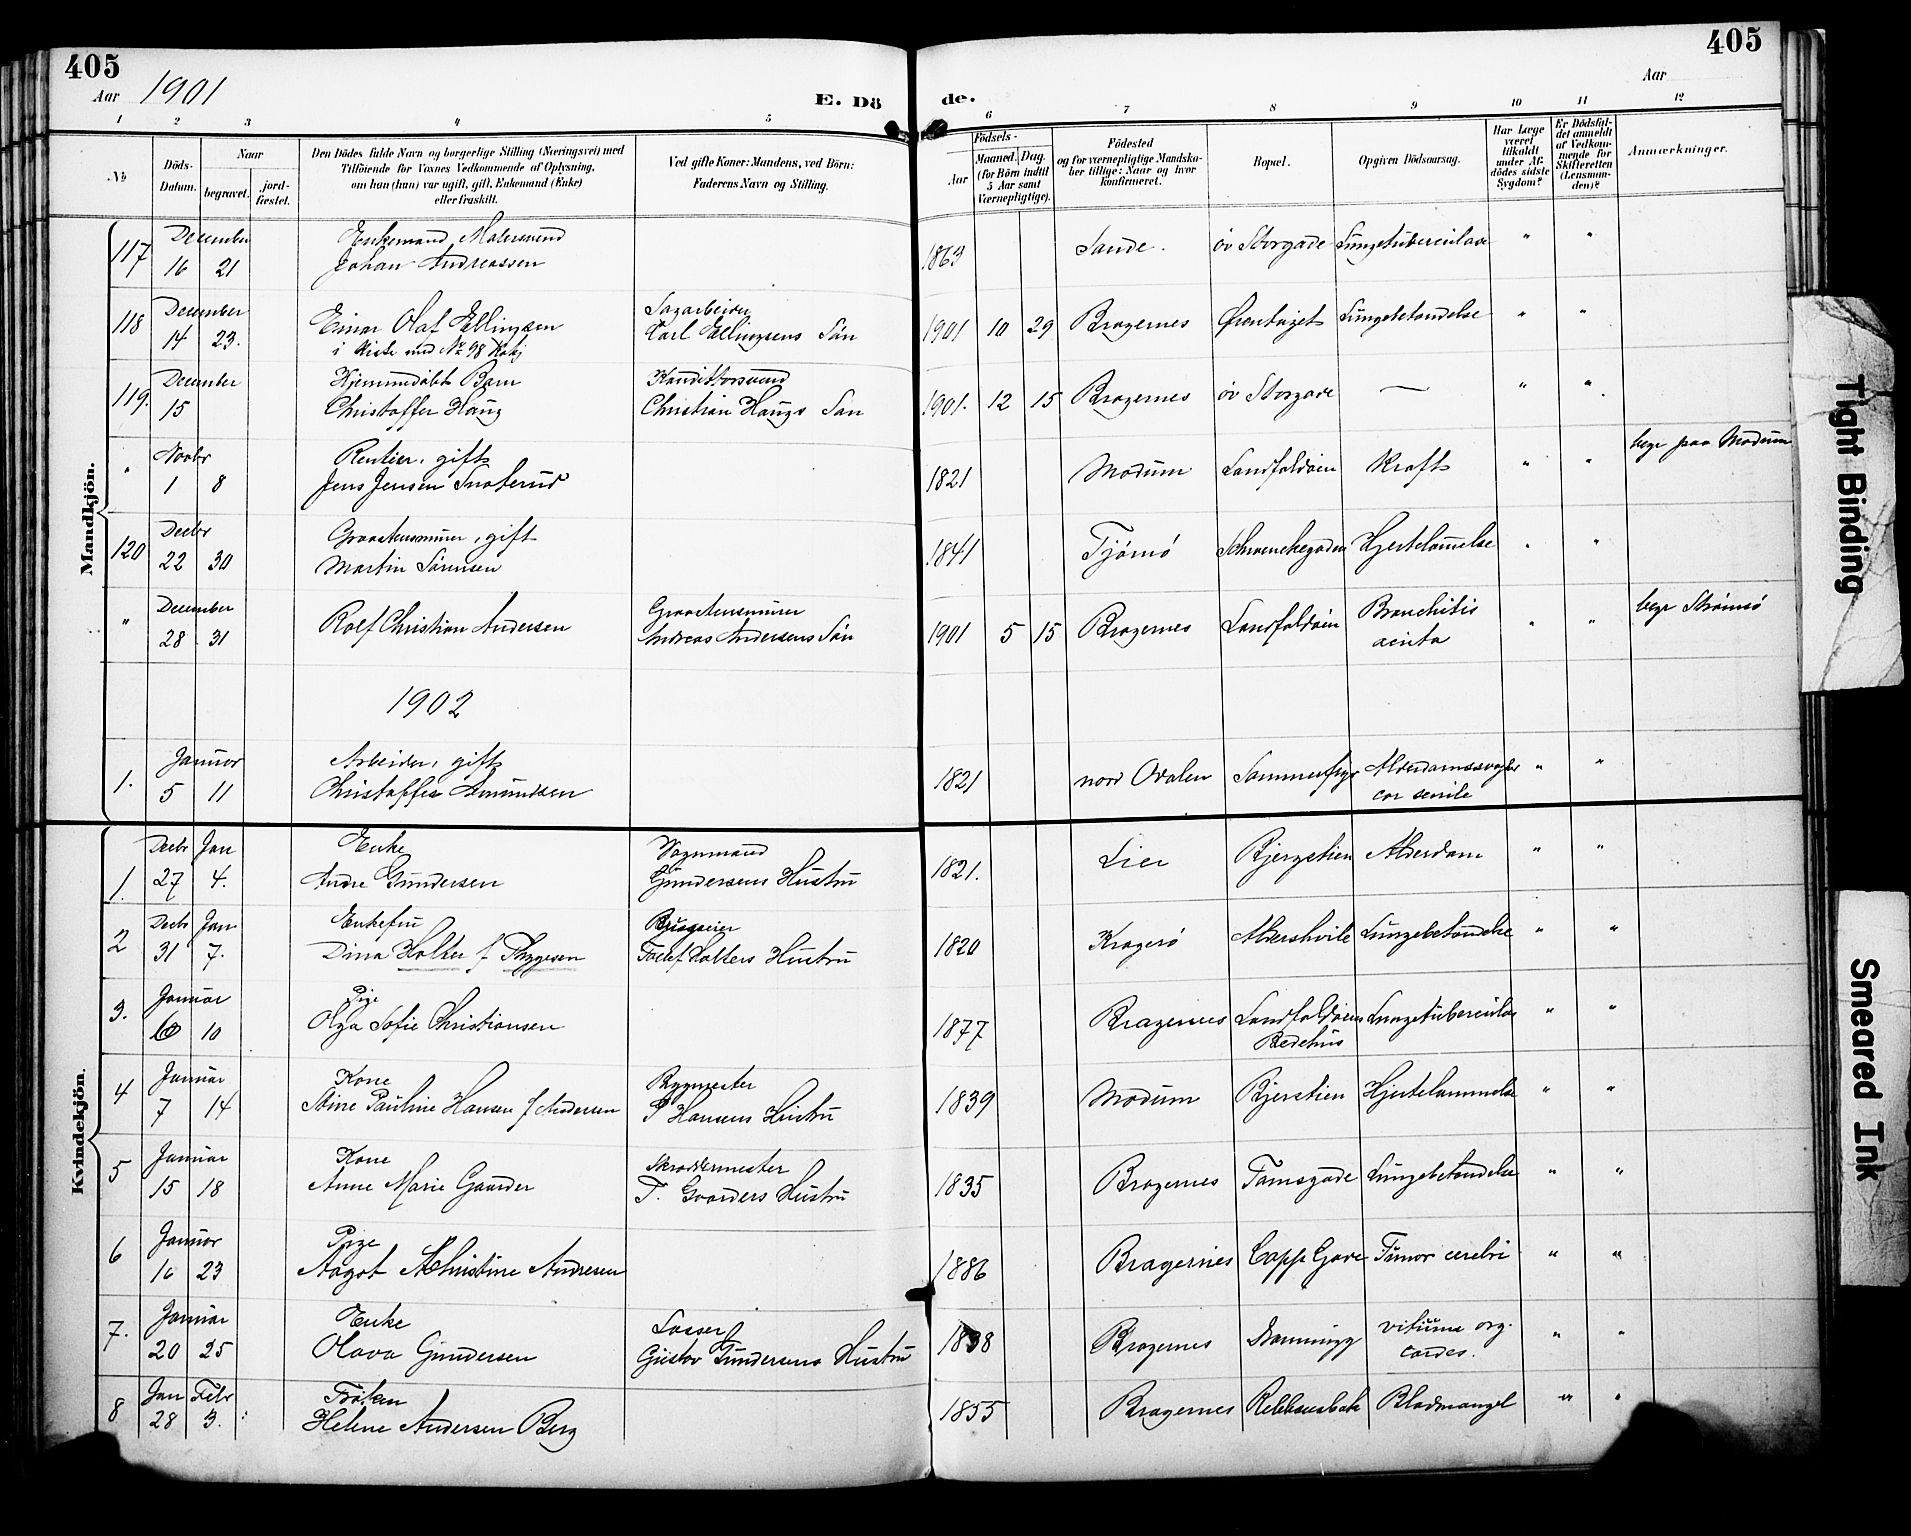 405
Aar 1901
E. Dö
de.
405
Aar
1 2 3 4 5 6 7 8 9 10 11 12
No
Döds-
Datum.
Naar
begravet.
jord-
fæstet.
Den Dödes fulde Navn og borgerlige Stilling (Næringsvei) med
Tilföiende for Voxnes Vedkommende af Oplysning,
om han (hun) var ugift, gift, Enkemand (Enke)
eller fraskilt.
Ved gifte Koner: Mandens, ved Börn:
Faderens Navn og Stilling.
Födsels-
Aar
Maaned. Dag.
(for Börn indtil
5 Aar samt
Værnepligtige).
Födested
og for værnepligtige Mandska-
ber tillige: Naar og hvor
konfirmeret.
Bopæl.
Opgiven Dödsaarsag.
Har Læge
været
tilkaldt
under Af-
dödes sidste
Sygdom?
Er Dödsfal-
det anmeldt
af Vedkom-
mende for
Skifteretten
(Lensman-
den)?
Anmærkninger.
Mandkjön.
December Enkemand
117 16 21 Johan Andreassen 1863 Sande. öv Storgade Lungetuberculose " "
December Sagarbeider
118 14 23. Einar Olaf Ellingsen Carl Ellingsens Sön 1901 10 29 Bragernes Lungebetændelse " "
i Kiste med No 98
December Hjemmedöbt Barn
119. 15 Christoffer Haug Christian Haugs Sön 1901. 12 15 Bragernes öv Storgade — " "
Novbr Rentier, gift
" 1 8 Jens Jensen 1821 Modum Landfaldöien Kræft " " begr paa Modum
Decbr gift
120 22 30 Martin Sörensen 1841 Tjömö Hjertelammelse " "
December
" 28 31 Rolf Christian Andersen Andreas Andersens Sön 1901 5 15 Bragernes Landfaldöien Bronchitis " " begr Strömsö
acuta
1902
Januar Arbeider, gift
1. 5 11 Christoffer Amundsen 1821 nord Odalen " "
cor senile
Kvindekjön.
Decbr Jan Enke Vognmand
1. 27 4. Andre Gundersen Gundersens Hustru 1821. Lier Bjergstien Alderdom " "
Decbr Jan Enkefru
2 31 7. Dina Holter f Thygesen Holters Hustru 1820 Kragerö Aldershvile Lungebetændelse " "
Januar Pige
3. 6 10 Olga Sofie Christiansen 1877 Bragernes Landfaldöiens Lungetuberculose " "
Bedehus
Januar Kone Bygmester
4 7 14 Stine Pauline Hansen f Andersen P Hansens Hustru 1839 Modum Bjerstien Hjertelammelse " "
Januar Kone Skreddermester
5 15 18 Anne Marie Gaarder T. Gaarders Hustru 1835 Bragernes Tomsgade Lungebetændelse " "
Januar Pige
6 16 23 Aagot Christine Andresen 1886 Bragernes Capp Gade Tumor cerebri " "
Januar Enke Losser
7. 20 25 Olava Gundersen Gustav Gundersens Hustru 1838 Bragernes vitium org. " "
cordis.
Jan Febr Fröken
8 28 3. Helene Andersen Berg 1855 Bragernes Blodmangel " "
Tight Binding
Smeared Ink